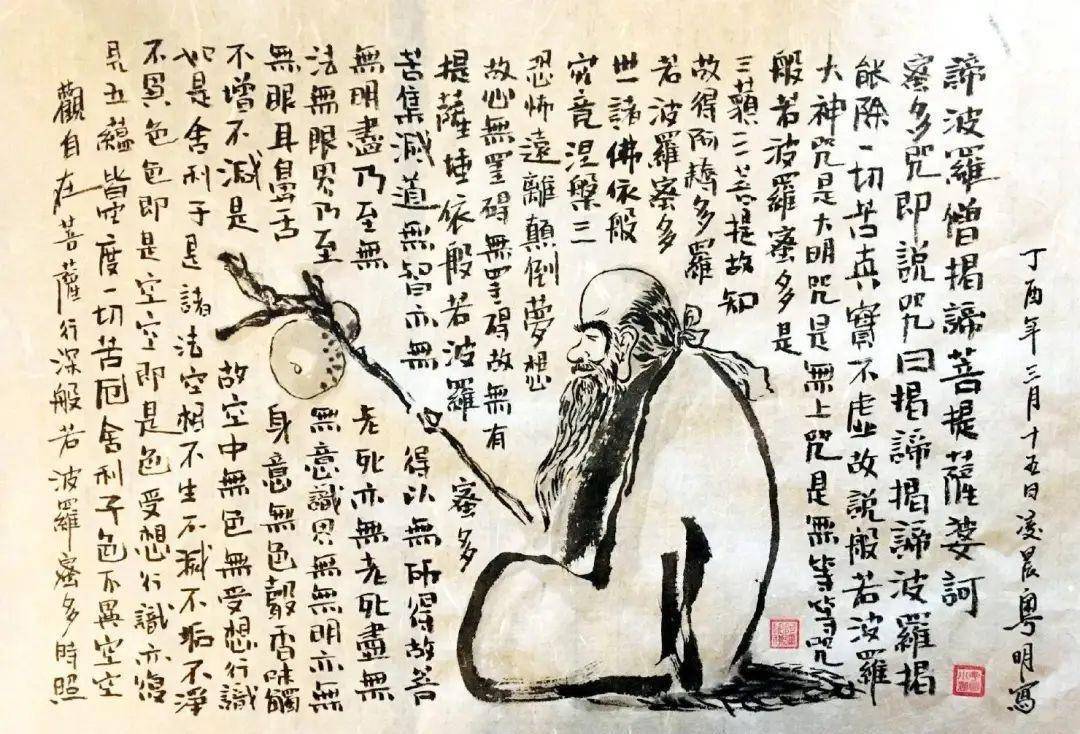 觀自在菩薩行深般若波羅蜜多時照
見五蘊皆空度一切苦厄舍利子色不異空空
不異色色即是空空即是色受想行識亦復
如是舍利子是諸法空相不生不滅不垢不淨
不增不減是故空中無色無受想行識
無眼耳鼻舌身意無色聲香味觸
法無眼界乃至無意識界無無明亦無
無明盡乃至無老死亦無老死盡無
苦集滅道無智亦無得以無所得故菩
提薩埵依般若波羅蜜多
故心無罣碍無罣碍故無有
恐怖遠離顛倒夢想
究竟涅槃三
世諸佛依般
若波羅蜜多
故得阿耨多羅
三藐三菩提故知
般若波羅蜜多是
大神咒是大明咒是無上咒是無等等咒
能除一切苦真實不虛故説般若波羅
蜜多咒即説咒曰揭諦揭諦波羅揭
諦波羅僧揭諦菩提薩婆訶
丁酉年三月十五日凌晨粵明寫